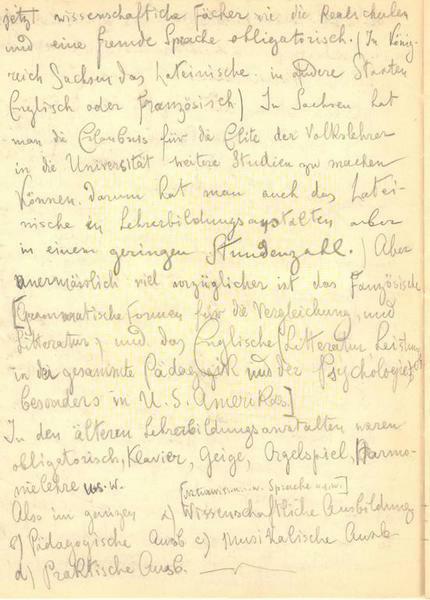 jetzt wissenschaftliche Fächer wie die Realschulen
und eine fremde Sprache obligatorisch. (In König-
reich Sachsen das Lateinische. in andere Staaten
Englisch oder Französisch) In Sachsen hat
man die Erlaubnis für die Elite der Volkslehrer
in die Universität weitere Studien zu machen
können. Darum hat man auch das Latei-
nische in Lehrerbildungsanstalten aber
in einem geringen Stundenzahl.) Aber
unermässlich viel vorzüglicher ist das Französische
[Grammatische Formen für die Vergleichung, und
Litteratur, und das Englische (Litteratur Leistung
in der gesammte Pädagogik und der Psychologie)
besonders in U. S. Amerikas]
In den älteren Lehrerbildungsanstalten waren
obligatorisch, Klavier, Geige, Orgelspiel, Harmo-
nielehre us. w.
Sprache u.s.w.]
Also im ganzen a) Wissenschaftliche Ausbildung
b) Pädagogische Ausb c) musikalische Ausb-
d) Praktische Ausb.